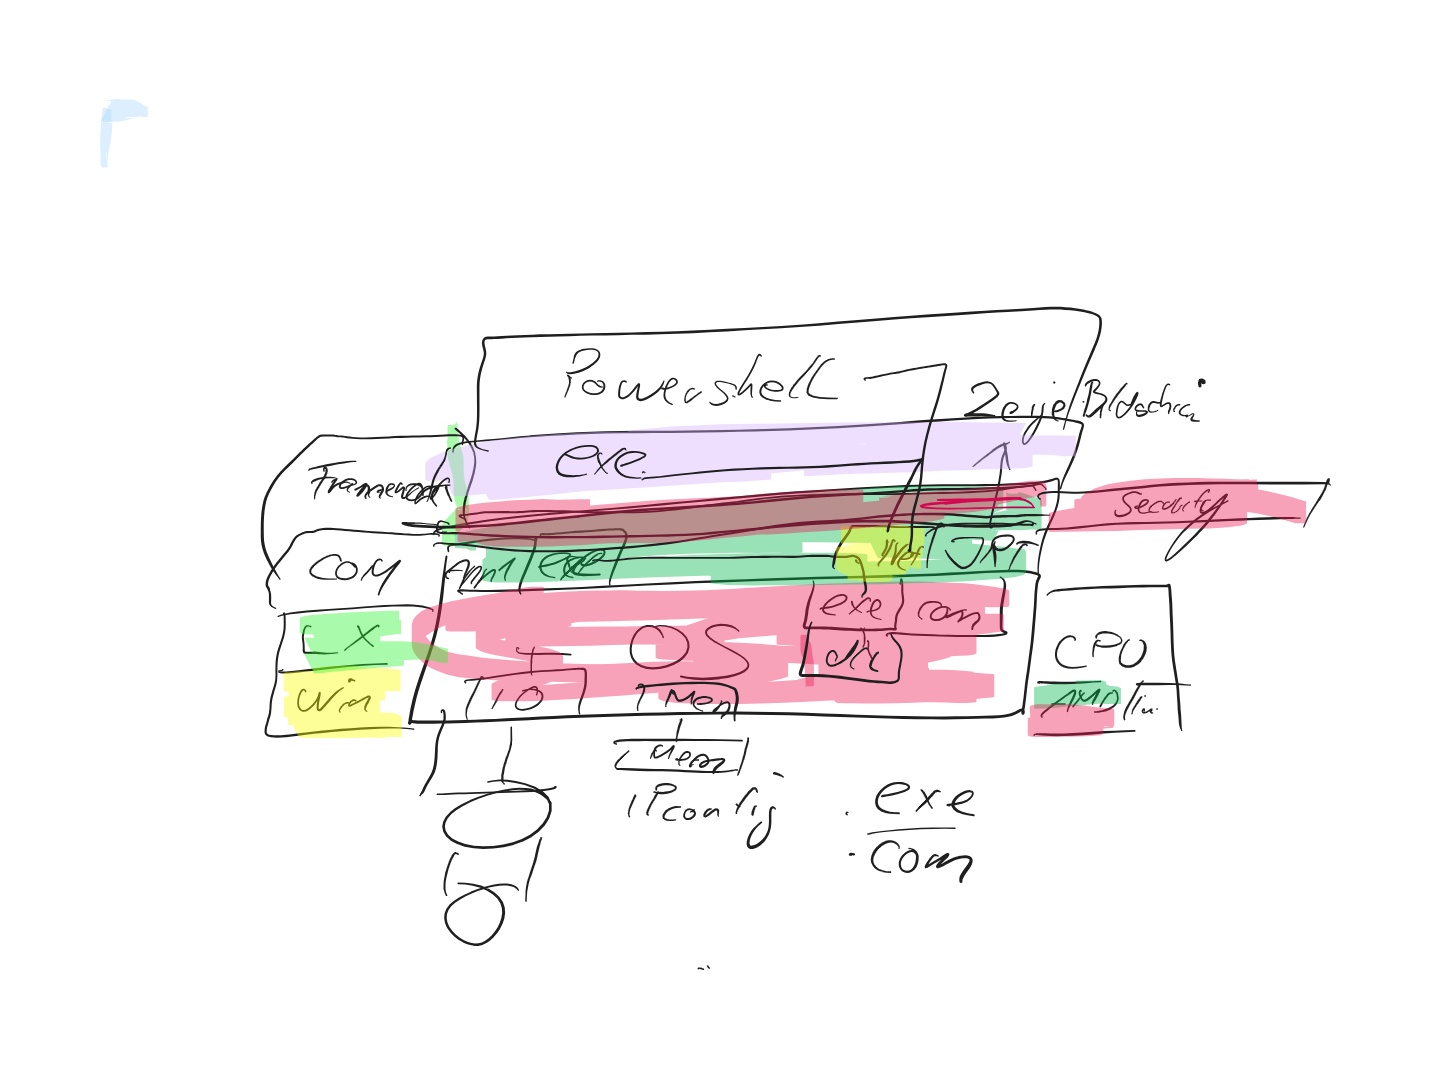 Powershell
Zeige Bildschirm
exe
Framework
Security
COM
exe
exe com
LX
OS
CPU
Win
IO
Mem
AMD
Mem
IPconfig
.exe
.com